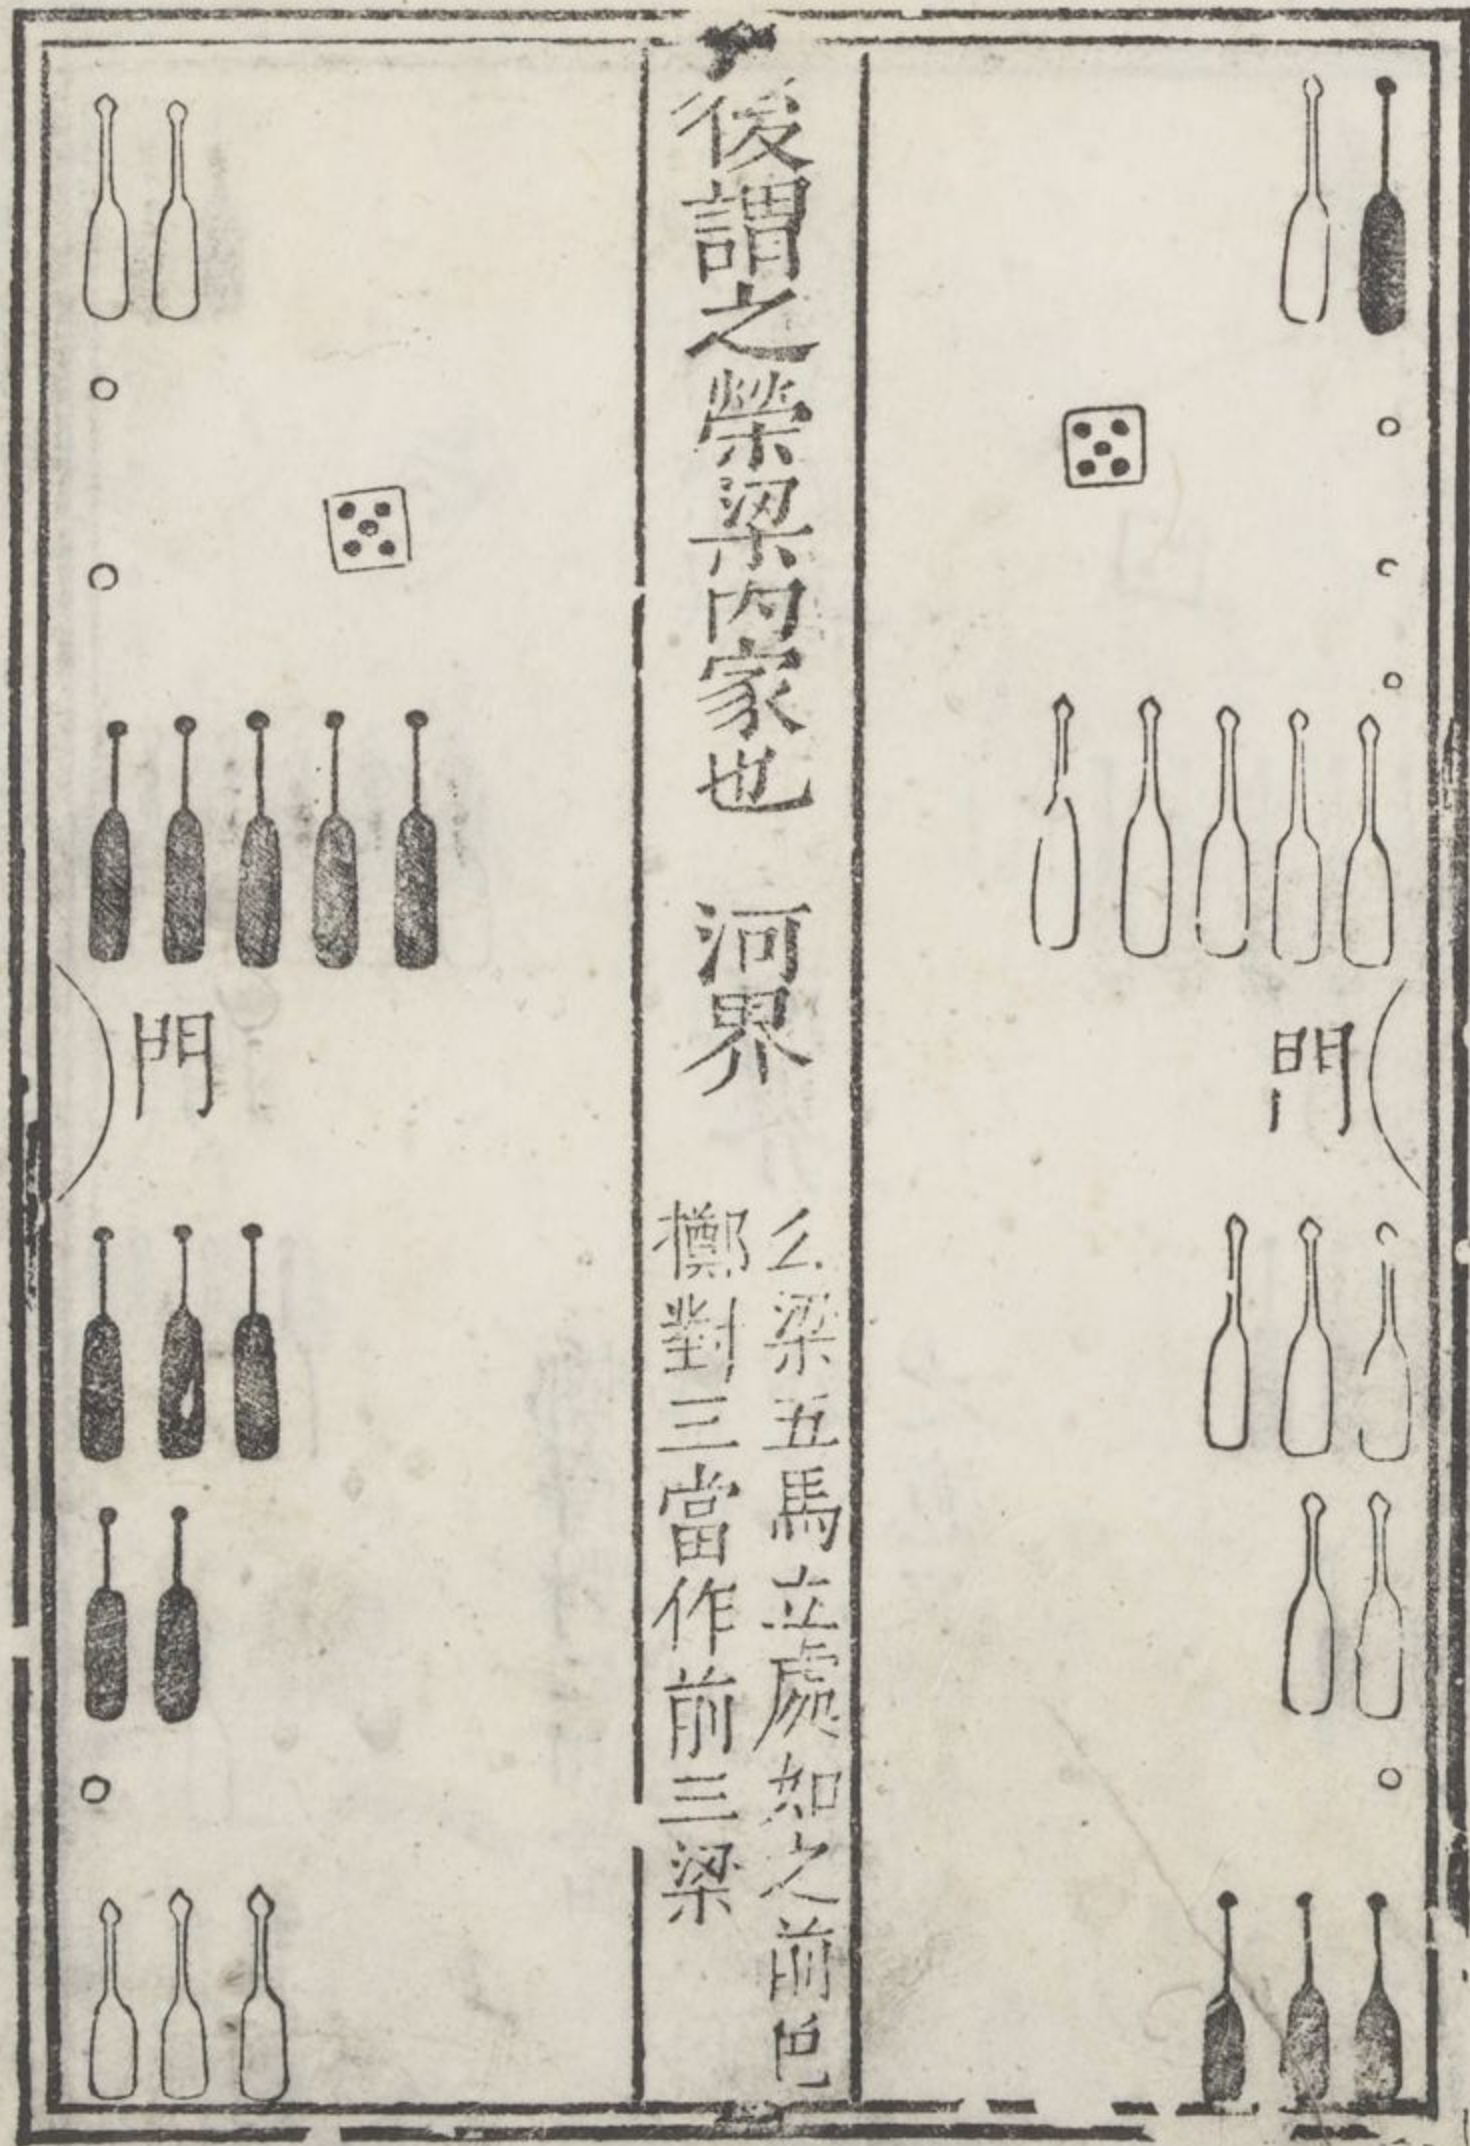 後謂之滎梁内家也　河界
么梁五馬立處如之前色
擲對三當作前三梁
門
門